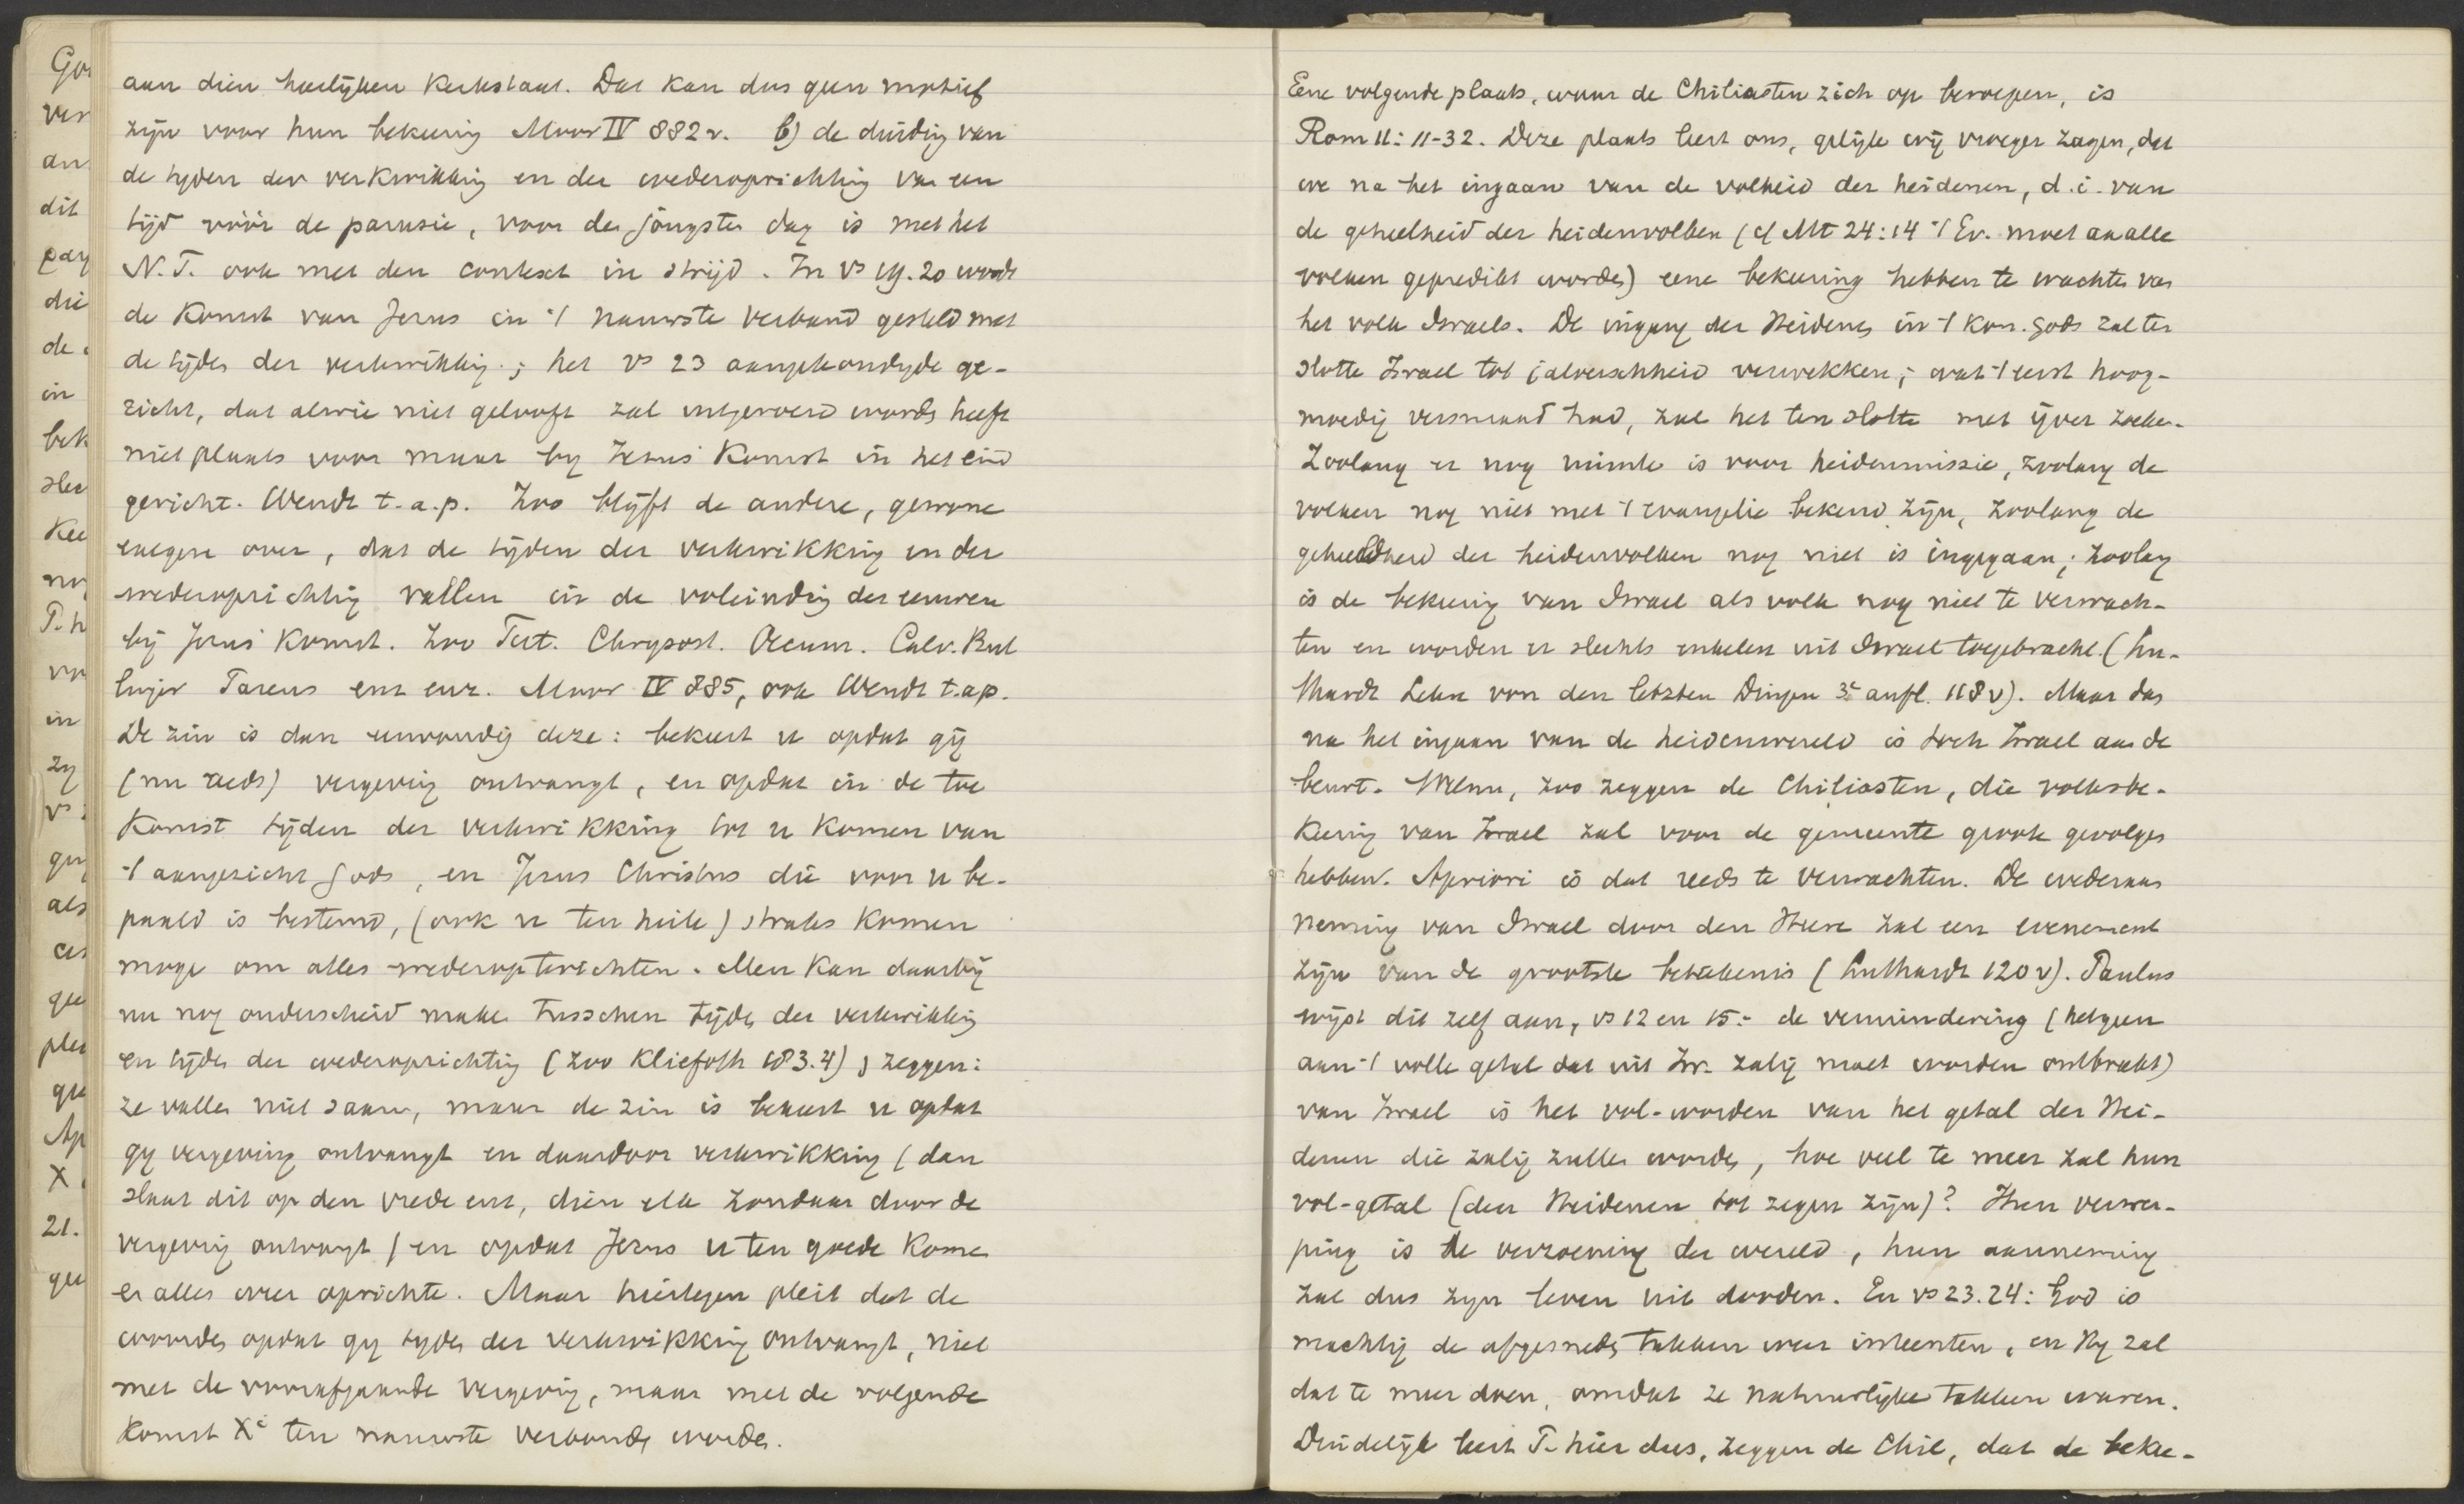 aan dien heerlijken Kerkstaat. Dat kan dus geen motief
zijn voor hun bekeering Moor IV 882v. b) de duiding van
de tyden der verkwikking en der wederoprichting van een
tijd vóór de parusie, voor den jongsten dag is met het
N.T. ook met den context in strijd. In vs 19.20 wordt
de Komst van Jezus in 't nauwste verband gesteld met
de tijden der verkwikking; het vs 23 aangekondigde ge-
richt, dat alwie niet gelooft zal uitgeroeid worden heeft
niet plaats voor maar by Jezus' Komst in het eind
gericht. Wendt t.a.p. Zoo blijft de andere, gewone
exegese over, dat de tijden der verkwikking en der
wederoprichting vallen in de voleinding der eeuwen
bij Jezus' Komst. Zoo Tert. Chrysost. Oecum. Calv. Bul
linger Pareus enz enz. Moor IV 885, ook Wendt t.a.p.
De zin is dan eenvoudig deze: bekeert u opdat gij
(nu reeds) vergeving ontvangt, en opdat in de toe
Komst tijden der verkwikking tot u komen van
't aangezicht Gods, en Jezus Christus die voor u be-
paald is bestemd, (ook u ten heile) straks komen
moge om alles wederopterichten. Men kan daarbij
nu nog onderscheid maken tusschen tijden der verkwikking
en tijden der wederoprichting (zoo Kliefoth 183.4) zeggen:
ze vallen niet saam, maar de zin is bekeert u opdat
gy vergeving ontvangt en daardoor verkwikking (dan
slaat dit op den vrede enz, dien elk zondaar door de
vergeving ontvangt) en opdat Jezus u ten goede Kome
en alles weer oprichte. Maar hiertegen pleit dat de
woorden opdat gy tyden der verkwikking ontvangt, niet
met de voorafgaande vergeving, maar met de volgende
Komst Xi ten nauwste verbonden worden.
Eene volgende plaats, waar de Chiliasten zich op beroepen, is
Rom 11: 11-32. Deze plaats leert ons, gelijk wij vroeger zagen, dat
we na het ingaan van de volheid der heidenen, d.i. van
de geheelheid der heidenvolken (cf Mt 24:14 't Ev. moet aan alle
volken gepredikt worden) eene bekeering hebben te wachten van
het volk Israels. De ingang der Heidenen in 't Kon. Gods zal ten
slotte Israel tot jaloerschheid verwekken; wat 't eerst hoog-
moedig versmaad had, zal het ten slotte met ijver zoeken.
Zoolang er nog ruimte is voor heidenmissie, zoolang de
volken nog niet met 't evangelie bekend zijn, zoolang de
geheelheid der heidenvolken nog niet is ingegaan, zoolang
is de bekeering van Israel als volk nog niet te verwach-
ten en worden er slechts enkelen uit Israel toegebracht. (Lu-
thardt Lehre von den letzten Dingen 3e aufl. 118v). Maar dan
na het ingaan van de heidenwereld is toch Israel aan de
beurt. Welnu, zoo zeggen de Chiliasten, die volksbe-
keering van Israel zal voor de gemeente groote gevolgen
hebben. Apriori is dat reeds te verwachten. De wederaan
neming van Israel door den Heere zal een evenement
zijn van de grootste beteekenis (Luthardt 120v). Paulus
wijst dit zelf aan, vs 12 en 15: de vermindering (hetgeen
aan 't volle getal dat uit Isr. zalig moet worden ontbreekt)
van Israel is het vol-worden van het getal der Hei-
denen die zalig zullen worden, hoe veel te meer zal hun
vol-getal (den Heidenen tot zegen zijn)? Hun verwer-
ping is de verzoening der wereld, hun aanneming
zal dus zyn leven uit dooden. En vs 23.24: God is
machtig de afgesneden takken weer inteenten, en Hy zal
dat te meer doen, omdat ze natuurlijke takken waren.
Duidelijk leert P. hier dus, zeggen de Chil, dat de bekee-